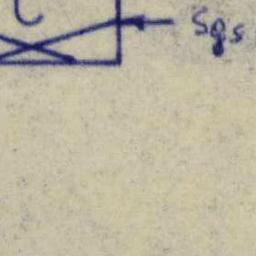 C
Sgs